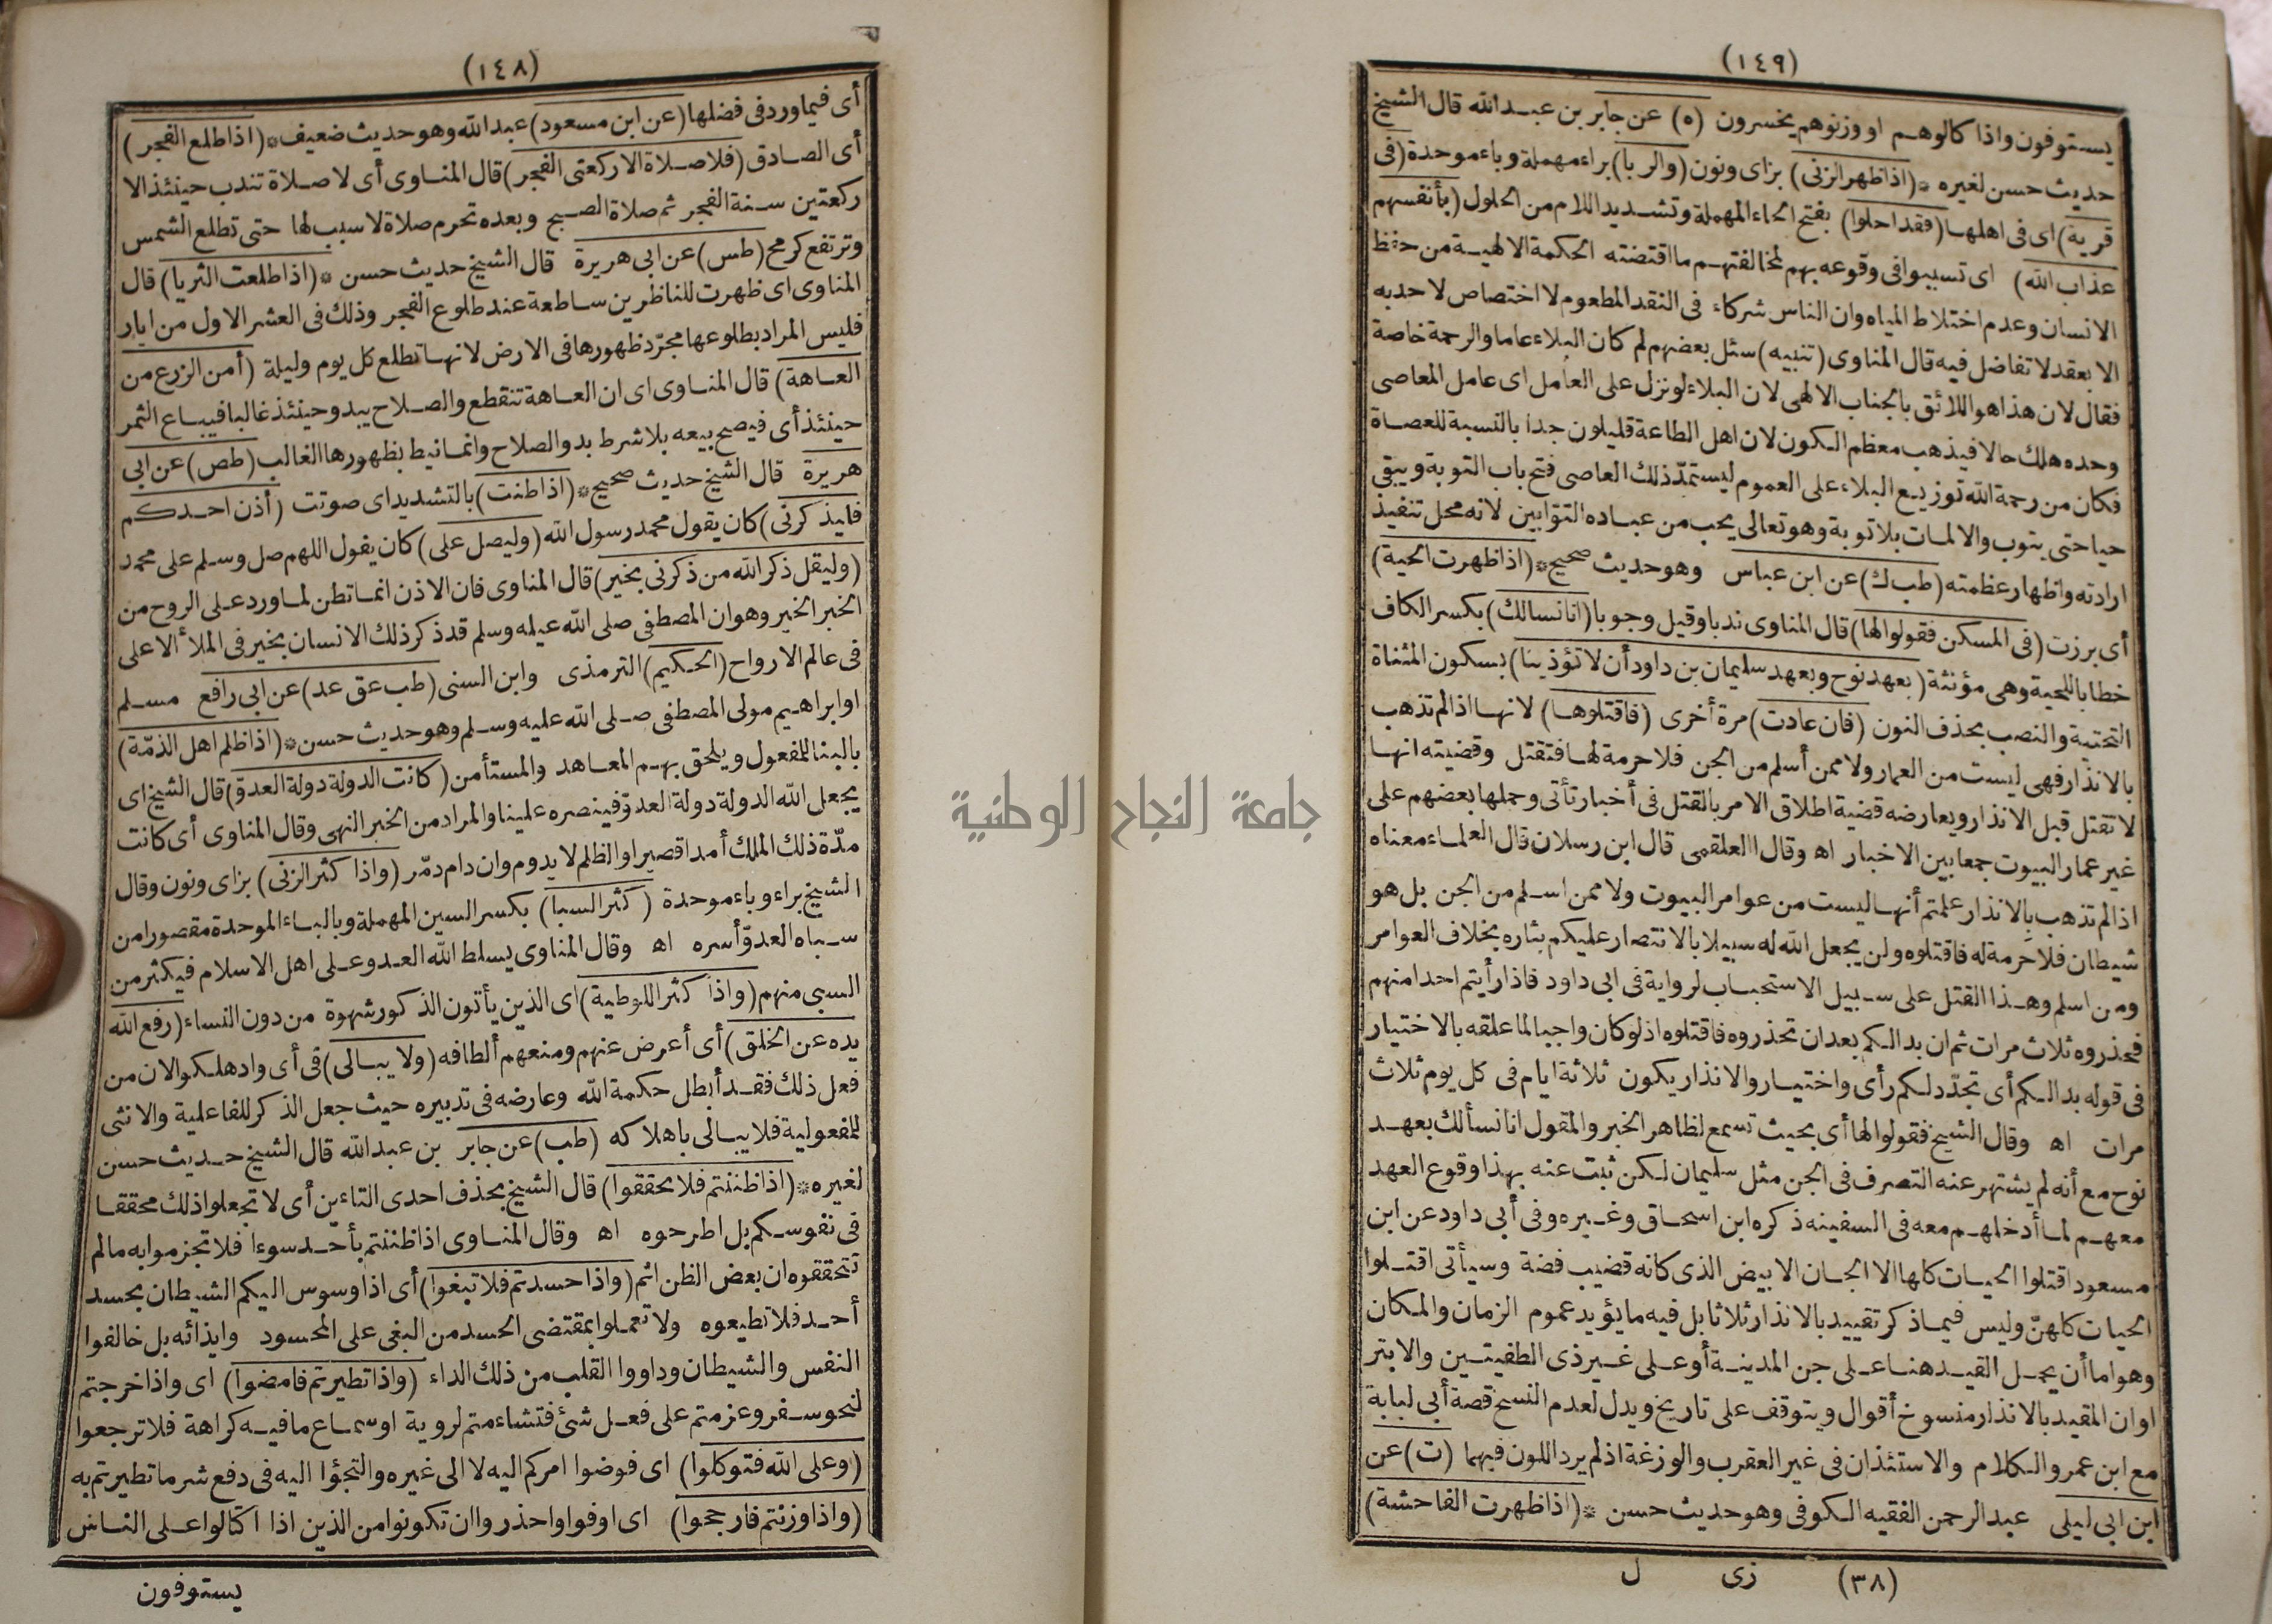 (١٤٨)
أى فيما ورد فى فضلها (عن ابن مسعود) عبد الله وهو حديث ضعيف * (اذا طلع الفجر)
أى الصادق (فلا صلاة الا ركعتى الفجر) قال المناوى أى لا صلاة تندب حينئذ الا
ركعتين سنة الفجر ثم صلاة الصبح وبعده تحرم صلاة لا سبب لها حتى تطلع الشمس
وترتفع كرمح (طس) عن ابى هريرة قال الشيخ حديث حسن * (اذا طلعت الثريا) قال
المناوى اى ظهرت للناظرين ساطعة عند طلوع الفجر وذلك فى العشر الاول من ايار
فليس المراد بطلوعها مجرّد ظهورها فى الارض لانها تطلع كل يوم وليلة (أمن الزرع من
العاهة) قال المناوى اى ان العاهة تنقطع والصلاح يبدو حينئذ غالبا فيباع الثمر
حينئذ أى فيصح بيعه بلا شرط بدو الصلاح وانما نيط بظهورها الغالب (طص) عن ابى
هريرة قال الشيخ حديث صحيح * (اذا طنت) بالتشديد اى صوتت (أذن احدكم
فليذكرنى) كان يقول محمد رسول الله (وليصل على) كان يقول اللهم صل وسلم على محمد
(وليقل ذكر الله من ذكرنى بخير) قال المناوى فان الاذن انما تطن لما ورد على الروح من
الخبر الخير وهو ان المصطفى صلى الله عيله وسلم قد ذكر ذلك الانسان بخير فى الملأ الاعلى
فى عالم الارواح (الحكيم) الترمذى وابن السنى (طب عق عد) عن ابى رافع مسلم
او ابراهيم مولى المصطفى صلى الله عليه وسلم وهو حديث حسن * (اذا ظلم اهل الذمّة)
بالبنا للمفعول ويلحق بهم المعاهد والمستأمن (كانت الدولة دولة العدوّ) قال الشيخ اى
يجعل الله الدولة دولة العدوّ فينصره علينا والمراد من الخبر النهى وقال المناوى أى كانت
مدّة ذلك الملك أمدا قصيرا والظلم لا يدوم وان دام دمّر (واذا كثر الزنى) بزاى ونون وقال
الشيخ براء وباء موحدة (كثر السبا) بكسر السين المهملة وبالباء الموحدة مقصورا من
سباه العدوّ أسره اه وقال المناوى يسلط الله العدو على اهل الاسلام فيكثر من
السبى منهم (واذا كثر اللوطية) اى الذين يأتون الذكور شهوة من دون النساء (رفع الله
يده عن الخلق) أى أعرض عنهم ومنعهم ألطافه (ولا يبالى) فى أى واد هلكوا لان من
فعل ذلك فقد أبطل حكمة الله وعارضه فى تدبيره حيث جعل الذكر للفاعلية والانثى
للمفعولية فلا يبالى باهلاكه (طب) عن جابر بن عبد الله قال الشيخ حديث حسن
لغيره * (اذا ظننتم فلا تحققوا) قال الشيخ بحذف احدى التاءين أى لا تجعلوا ذلك محققا
فى نفوسكم بل اطرحوه اه وقال المناوى اذا ظننتم بأحد سوءا فلا تجزموا به ما لم
تتحققوه ان بعض الظن اثم (واذا حسدتم فلا تبغوا) أى اذا وسوس اليكم الشيطان بحسد
أحد فلا تطيعوه ولا تعملوا بمقتضى الحسد من البغى على المحسود وايذائه بل خالفوا
النفس والشيطان وداووا القلب من ذلك الداء (واذا تطيرتم فامضوا) اى واذا خرجتم
لنحو سفر وعزمتم على فعل شئ فتشاءمتم لروية او سماع ما فيه كراهة فلا ترجعوا
(وعلى الله فتوكلوا) اى فوضوا امركم اليه لا الى غيره والتجؤا اليه فى دفع شر ما تطيرتم به
(واذا وزنتم فارجحوا) اى اوفوا واحذروا ان تكونوا من الذين اذا اكتالوا على الناس
يستوفون
(١٤٩)
يستوفون واذا كالوهم او وزنوهم يخسرون (ه) عن جابر بن عبد الله قال الشيخ
حديث حسن لغيره * (اذا ظهر الزنى) بزاى ونون (والربا) براء مهملة وباء موحدة (فى
قرية) اى فى اهلها (فقد احلوا) بفتح الحاء المهملة وتشديد اللام من الحلول (بأنفسهم
عذاب الله) اى تسببوا فى وقوعه بهم لمخالفتهم ما اقتضته الحكمة الالهية من حفظ
الانسان وعدم اختلاط المياه وان الناس شركاء فى النقد المطعوم لا اختصاص لاحد به
الا بعقد لا تفاضل فيه قال المناوى (تنبيه) سئل بعضهم لم كان البلاء عاما والرحمة خاصة
فقال لان هذا هو اللائق بالجناب الالهى لان البلاء لو نزل على العامل اى عامل المعاصى
وحده هلك حالا فيذهب معظم الكون لان اهل الطاعة قليلون جدا بالنسبة للعصاة
فكان من رحمة الله توزيع البلاء على العموم ليستمدّ ذلك العاصى فتح باب التوبة ويبقى
حيا حتى يتوب والا لمات بلا توبة وهو تعالى يحب من عباده التوّابين لانه محل تنفيذ
ارادته واظهار عظمته (طب ك) عن ابن عباس وهو حديث صحيح * (اذا ظهرت الحية)
أى برزت (فى المسكن فقولوا لها) قال المناوى ندبا وقيل وجوبا (انا نسالك) بكسر الكاف
خطابا للحية وهى مؤنثة (بعهد نوح وبعهد سليمان بن داود أن لا تؤذينا) بسكون المثناة
التحتية والنصب بحذف النون (فان عادت) مرة أخرى (فاقتلوها) لانها اذا لم تذهب
بالانذار فهى ليست من العمار ولا ممن أسلم من الجن فلا حرمة لها فتقتل وقضيته انها
لا تقتل قبل الانذار ويعارضه قضية اطلاق الامر بالقتل فى أخبار تأتى وحملها بعضهم على
غير عمار البيوت جمعا بين الاخبار اه وقال االعلقمى قال ابن رسلان قال العلماء معناه
اذا لم تذهب بالانذار علمتم أنها ليست من عوامر البيوت ولا ممن اسلم من الجن بل هو
شيطان فلا حرمة له فاقتلوه ولن يجعل الله له سبيلا بالانتصار عليكم بثاره بخلاف العوامر
ومن اسلم وهذا القتل على سبيل الاستحباب لرواية فى ابى داود فاذا رأيتم احدا منهم
فحذروه ثلاث مرات ثم ان بدا لكم بعد ان تحذروه فاقتلوه اذ لو كان واجبا لما علقه بالاختيار
فى قوله بدا لكم أى تجدّد لكم رأى واختيار والانذار يكون ثلاثة ايام فى كل يوم ثلاث
مرات اه وقال الشيخ فقولوا لها أى بحيث تسمع لظاهر الخبر والمقول انا نسألك بعهد
نوح مع أنه لم يشتهر عنه التصرف فى الجن مثل سليمان لكن ثبت عنه بهذا وقوع العهد
معهم لما أدخلهم معه فى السفينه ذكره ابن اسحاق وغيره وفى أبى داود عن ابن
مسعود اقتلوا الحيات كلها الا الجان الابيض الذى كانه قضيب فضة وسيأتى اقتلوا
الحيات كلهنّ وليس فيما ذكر تقييد بالانذار ثلاثا بل فيه ما يؤيد عموم الزمان والمكان
وهو اما أن يحمل القيد هنا على جن المدينة أو على غير ذى الطفيتين والابتر
او ان المقيد بالانذار منسوخ أقوال ويتوقف على تاريخ ويدل لعدم النسخ قصة أبى لبابة
مع ابن عمر والكلام والاستئذان فى غير العقرب والوزغة اذ لم يرد اللون فيهما (ت) عن
ابن ابى ليلى عبد الرحمن الفقيه الكوفى وهو حديث حسن * (اذا ظهرت الفاحشة)
(٣٨) زى ل
جامعة النجاح الوطنية